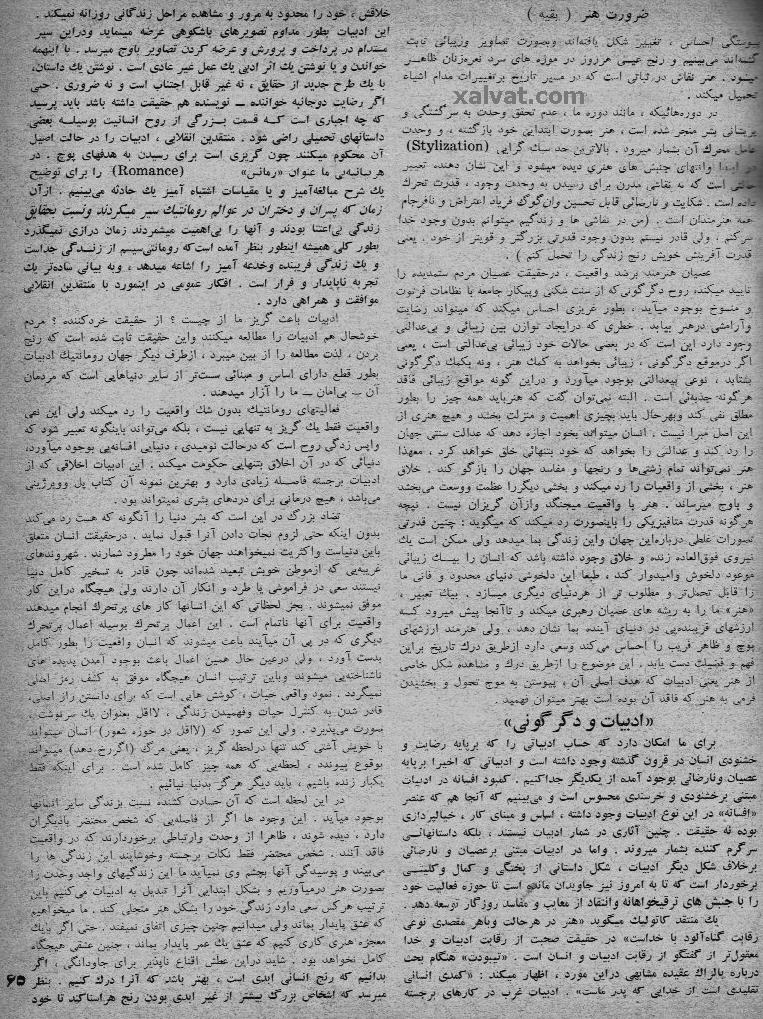 ضرورت هنر ( بقیه )
پیوستگی احساس ، تغییر شکل یافته‌اند وبصورت تصاویر وزیبائی ثابت
گشته‌اند می‌بینیم و رنج عیسی هرروز در موزه های سرد نعره‌زنان ظاهر
میشود . هنر نقاش در ثباتی است که در مسیر تاریخ برتغییرات مدام اشیاء
تحمیل میکند .
xalvat.com
در دوره‌هائیکه ، مانند دوره ما ، عدم تحقق وحدت به سرگشتگی و
پریشانی بشر منجر شده است ، هنر بصورت ابتدایی خود بازگشته ، و وحدت
عامل محرک آن بشمار میرود . بالاترین حد سبک گرایی (Stylization)
در ابتدا وانتهای جنبش های هنری دیده میشود و این نشان دهنده تعبیر
خاصی است که به نقاشی مدرن برای رسیدن به وحدت وجود ، قدرت تحرک
داده است . شکایت و نارضائی قابل تحسین وان‌گوگ فریاد اعتراض و نافرجام
همه هنرمندان است . (من در نقاشی ها و زندگیم میتوانم بدون وجود خدا
سرکنم ، ولی قادر نیستم بدون وجود قدرتی بزرگتر و قویتر از خود ، یعنی
قدرت آفرینش خویش رنج زندگی را تحمل کنم ) .
عصیان هنرمند برضد واقعیت ، درحقیقت عصیان مردم ستمدیده را
تایید میکند، روح دگرگونی که از سنت شکنی وپیکار جامعه با نظامات فرتوت
و منسوخ بوجود میآید ، بطور غریزی احساس میکند که میتواند رضایت
وآرامشی درهنر بیابد . خطری که درایجاد توازن بین زیبائی و بی‌عدالتی
وجود دارد این است که در بعضی حالات خود زیبائی بی‌عدالتی است ، یعنی
اگر درموقع دگرگونی ، زیبائی بخواهد به کمک هنر ، ونه بکمک دگرگونی
بشتابد ، نوعی بیعدالتی بوجود میآورد و دراین گونه مواقع زیبائی فاقد
هرگونه جذبه‌ئی است . البته نمی‌توان گفت که هنرباید همه چیز را بطور
مطلق نفی کند وبهرحال باید بچیزی اهمیت و منزلت بخشد و هیچ هنری از
این اصل مبرا نیست . انسان میتواند بخود اجازه دهد که عدالت سنتی جهان
را رد کند و عدالتی را بخواهد که خود بتنهائی خلق خواهد کرد ، معهذا
هنر نمی‌تواند تمام زشتی‌ها و رنجها و مفاسد جهان را بازگو کند . خلاق
هنر ، بخشی از واقعیات را رد میکند و بخشی دیگررا عظمت ووسعت می‌بخشد
و باوج میرساند . هنر با واقعیت میجنگد وازآن گریزان نیست . نیچه
هرگونه قدرت متافیزیکی را باینصورت رد میکند که میگوید : چنین قدرتی
تصورات غلطی درباره‌این جهان واین زندگی بما میدهد ولی ممکن است یک
نیروی فوق‌العاده زنده و خلاق وجود داشته باشد که انسان را بیک زیبائی
موعود دلخوش وامیدوار کند ، طبعا این دلخوشی دنیای محدود و فانی ما
را قابل تحمل‌تر و مطلوب تر از هردنیای دیگری میسازد . بیک تعبیر ،
«هنر» ما را به ریشه های عصیان رهبری میکند و تاآنجا پیش میرود که
ارزشهای فریبنده‌یی در دنیای آینده بما نشان دهد ، ولی هنرمند ارزشهای
پوچ و ظاهر فریب را احساس می‌کند وسعی دارد ازطریق درک تاریخ براین
فهم و فضیلت دست یابد . این موضوع را ازطریق درک و مشاهده شکل خاصی
از هنر یعنی ادبیات که هدف اصلی آن ، پیوستن به موج تحول و بخشیدن
فرمی به هنر که فاقد آن بوده است بهتر میتوان فهمید .
«ادبیات و دگرگونی»
برای ما امکان دارد که حساب ادبیاتی را که برپایه رضایت و
خشنودی انسان در قرون گذشته وجود داشته است و ادبیاتی که اخیرا برپایه
عصیان ونارضائی بوجود آمده از یکدیگر جداکنیم . کمبود افسانه در ادبیات
مبتنی برخشنودی و خرسندی محسوس است و می‌بینیم که آنجا هم که عنصر
«افسانه» در این نوع ادبیات وجود داشته ، اساس و مبنای کار ، خیالپردازی
بوده نه حقیقت . چنین آثاری در شمار ادبیات نیستند ، بلکه داستانهائی
سرگرم کننده بشمار میروند . واما در ادبیات مبتنی برعصیان و نارضائی
برخلاف شکل دیگر ادبیات ، شکل داستانی از پختگی و کمال وکلیتی
برخوردار است که تا به امروز نیز جاویدان مانده است تا حوزه فعالیت خود
را با جنبش های ترقیخواهانه وانتقاد از معایب و مفاسد روزگار توسعه دهد .
یک منتقد کاتولیک میگوید «هنر در هرحالت وباهر مقصدی نوعی
رقابت گناه‌آلود با خداست» در حقیقت صحبت از رقابت ادبیات و خدا
معقول‌تر از گفتگو از رقابت ادبیات و انسان است . «تیبودت» هنگام بحث
درباره بالزاک عقیده مشابهی دراین مورد ، اظهار میکند : «کمدی انسانی
تقلیدی است از خدایی که پدر ماست» . ادبیات غرب در کارهای برجسته
خلاقش ، خود را محدود به مرور و مشاهده مراحل زندگانی روزانه نمیکند .
این ادبیات بطور مداوم تصویرهای باشکوهی عرضه مینماید ودراین سیر
مستدام در پرداخت و پرورش و عرضه کردن تصاویر باوج میرسد . با اینهمه
خواندن و یا نوشتن یک اثر ادبی یک عمل غیر عادی است . نوشتن یک داستان،
با یک طرح جدید از حقایق ، نه غیر قابل اجتناب است و نه ضروری . حتی
اگر رضایت دوجانبه خواننده ـ نویسنده هم حقیقت داشته باشد باید پرسید
که چه اجباری است که قسمت بزرگی از روح انسانیت بوسیله بعضی
داستانهای تحمیلی راضی شود . منتقدین انقلابی ، ادبیات را در حالت اصیل
آن محکوم میکنند چون گریزی است برای رسیدن به هدفهای پوچ . در
هربیانیه‌یی ما عنوان «رمانس» (Romance) را برای توضیح
یک شرح مبالغه‌آمیز و یا مقیاسات اشتباه آمیز یک حادثه می‌بینیم . ازآن
زمان که پسران و دختران در عوالم رومانتیک سیر میکردند ونسبت بحقایق
زندگی بی‌اعتنا بودند و آنها را بی‌اهمیت میشمردند زمان درازی نمیگذرد
بطور کلی همیشه اینطور بنظر آمده است‌که رومانتی‌سیسم از زندگی جداست
و یک زندگی فریبنده وخدعه آمیز را اشاعه میدهد ، وبه بیانی ساده‌تر یک
تجربه ناپایدار و فرار است . افکار عمومی در اینمورد با منتقدین انقلابی
موافقت و همراهی دارد .
ادبیات باعث گریز ما از چیست ؟ از حقیقت خردکننده ؟ مردم
خوشحال هم ادبیات را مطالعه میکنند واین حقیقت ثابت شده است که رنج
بردن ، لذت مطالعه را از بین میبرد ، ازطرف دیگر جهان رومانتیک ادبیات
بطور قطع دارای اساس و مبنائی سست‌تر از سایر دنیاهایی است که مردمان
آن ـ بی‌امان ـ ما را آزار میدهند .
فعالیتهای رومانتیک بدون شک واقعیت را رد میکند ولی این نفی
واقعیت فقط یک گریز به تنهایی نیست ، بلکه می‌تواند باینگونه تعبیر شود که
واپس زدگی روح است که درحالت نومیدی ، دنیایی افسانه‌یی بوجود میآورد،
دنیائی که در آن اخلاق بتنهایی حکومت میکند . این ادبیات اخلاقی که از
ادبیات برجسته فاصله زیادی دارد و بهترین نمونه آن کتاب پل وویرژینی
می‌باشد ، هیچ درمانی برای دردهای بشری نمیتواند بود .
تضاد بزرگ در این است که بشر دنیا را آنگونه که هست رد می‌کند
بدون اینکه حتی لزوم نجات دادن آنرا قبول نماید . درحقیقت انسان متعلق
باین دنیاست واکثریت نمیخواهند جهان خود را مطرود شمارند . شهروندهای
غریبه‌یی که ازموطن خویش تبعید شده‌اند چون قادر به تسخیر کامل دنیا
نیستند سعی در فراموشی یا طرد و انکار آن دارند ولی هیچگاه دراین کار
موفق نمیشوند . بجز لحظاتی که این انسانها کار های پرتحرک انجام میدهند
واقعیت برای آنها ناتمام است . این اعمال پرتحرک بوسیله اعمال پرتحرک
دیگری که در پی آن میآیند باعث میشوند که انسان واقعیت را بطور کامل
بدست آورد ، ولی درعین حال همین اعمال باعث بوجود آمدن پدیده های
ناشناخته‌یی میشوند وباین ترتیب انسان هیچگاه موفق به کشف رمز اصلی
نمیگردد . نمود واقعی حیات ، کوشش هایی است که برای دانستن راز اصلی،
قادر شدن به کنترل حیات وفهمیدن زندگی ، لااقل بعنوان یک سرنوشت ،
صورت می‌پذیرد . ولی این تصور که (لااقل در حوزه شعور) انسان میتواند
با خویش آشتی کند تنها درلحظه گریز ، یعنی مرگ (اگررخ دهد) میتواند
بوقوع پیوندد ، لحظه‌یی که همه چیز کامل شده است . برای اینکه فقط
یکبار زنده باشیم ، باید دیگر هرگز بدنیا نیائیم .
در این لحظه است که آن حسادت کشنده نسبت بزندگی سایر انسانها
بوجود میآید . این وجود ها اگر از فاصله‌یی که شخص محتضر بادیگران
دارد ، دیده شوند ، ظاهرا از وحدت وارتباطی برخوردارند که در واقعیت
فاقد آنند . شخص محتضر فقط نکات برجسته وخوشایند این زندگی ها را
می‌بیند و پوسیدگی آنها بچشم وی نمیآید ما این زندگیهای واجد وحدت را
بصورت هنر درمیآوریم و بشکل ابتدایی آنرا تبدیل به ادبیات می‌کنیم باین
ترتیب هرکس سعی دارد زندگی خود را بشکل هنر متجلی کند . ما میخواهیم
که عشق پایدار بماند ولی میدانیم چنین چیزی اتفاق نمیفتد . حتی اگر بایک
معجزه هنری کاری کنیم که عشق یک عمر پایدار بماند ، چنین عشقی هیچگاه
کامل نخواهد بود . شاید دراین عطش اقناع ناپذیر برای جاودانگی ، اگر
بدانیم که رنج انسانی ابدی است ، بهتر باشد که آنرا درک کنیم . بنظر
میرسد که اشخاص بزرگ بیشتر از غیر ابدی بودن رنج هراسناکند تا خود
۶۵